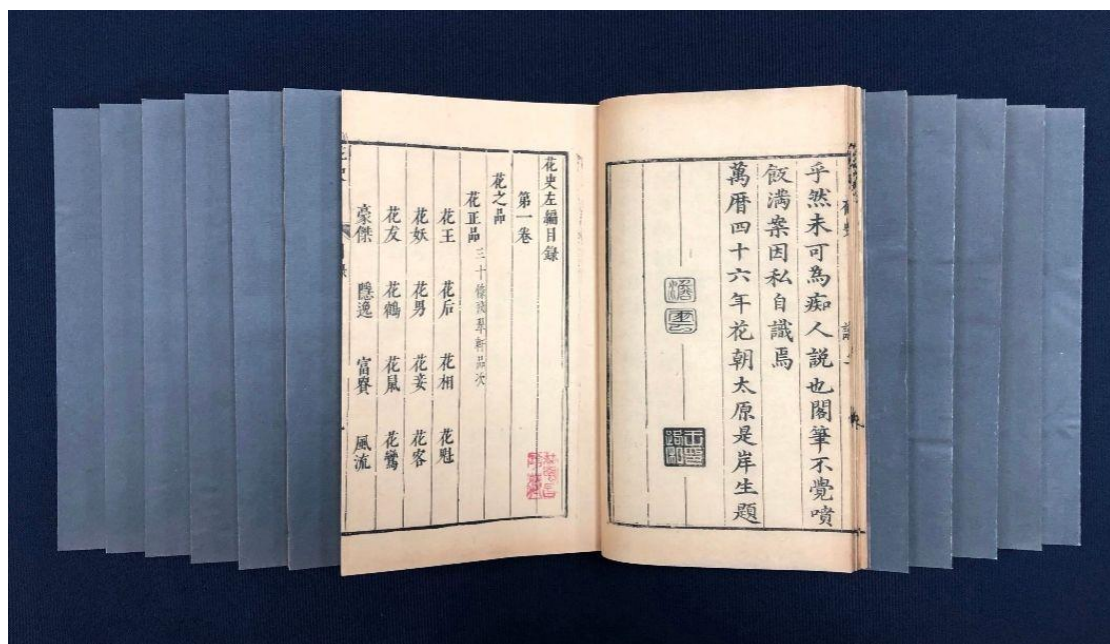 乎然未可為痴人説也閣筆不覺噴
飯滿案因私自識焉
萬曆四十六年花朝太原是岸生題
花史左編目錄
第一卷
花之品
花正品
花王 花后 花相 花魁
花妖 花男 花妾 花客
花友 花鶴 花鼠 花鶯
豪傑 隱逸 富貴 風流